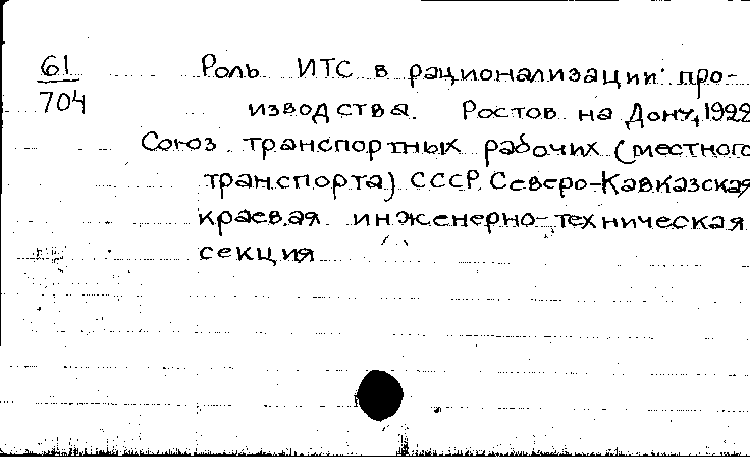 61 Роль ИТС в рационализации про-
704 изводства. Ростов на Дону, 1922
Союз транспортных рабочих (местного
транспорта) СССР. Северо-Кавказская
краевая инженерно-техническая
секция